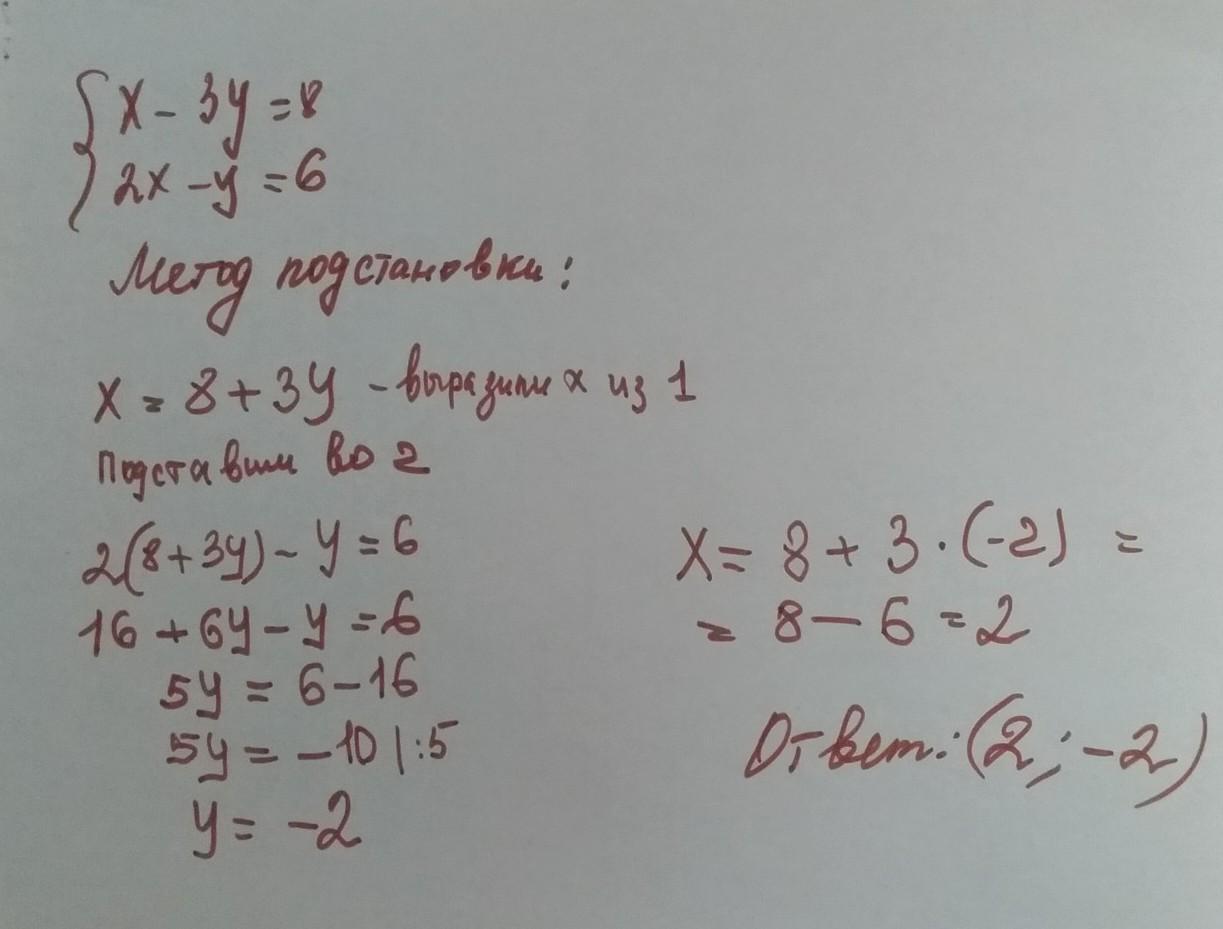 { x - 3y = 8
2x - y = 6
Метод подстановки:
x = 8 + 3y - выразили x из 1
Подставим во 2
2(8+3y) - y = 6
16 + 6y - y = 6
5y = 6 - 16
5y = -10 |:5
y = -2
x = 8 + 3 · (-2) =
= 8 - 6 = 2
Ответ: (2; -2)